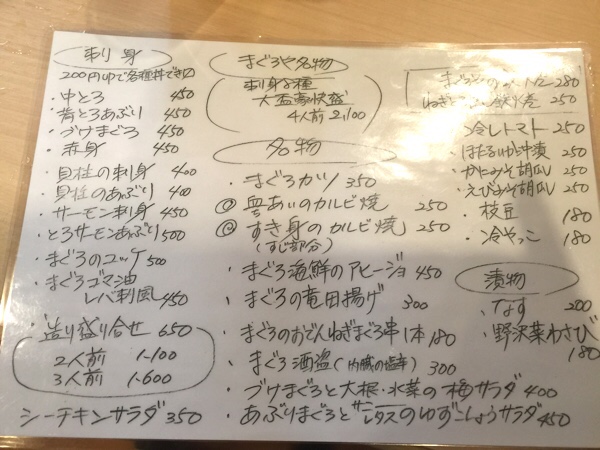 刺身
200円UPで各種丼でき〼
・中とろ 450
・背とろあぶり 450
・づけまぐろ 450
・赤身 450
・貝柱の刺身 400
・貝柱のあぶり 400
・サーモン刺身 450
・とろサーモンあぶり 500
・まぐろのユッケ 500
・まぐろゴマ油
レバ刺風 450
・造り盛り合せ 650
2人前 1.100
3人前 1.600
シーチキンサラダ 350
まぐろや名物
刺身8種
大盃豪快盛
4人前 2.100
名物
・まぐろカツ 350
あいのカルビ焼 250
すき身のカルビ焼 250
(すじ部分)
・まぐろ海鮮のアヒージョ 450
・まぐろの竜田揚げ 300
・まぐろのおどんねぎまぐろ串1本 180
・まぐろ酒盗(内臓の塩辛) 300
・づけまぐろと大根・水菜の梅サラダ 400
・あぶりまぐろとサニーレタスのゆずこしょうサラダ 450
280
250
・冷しトマト 250
・ほたるいか沖漬 250
・かにみそ胡瓜 250
・えびみそ胡瓜 250
・枝豆 180
・冷やっこ 180
漬物
・なす 200
・野沢菜わさび
180